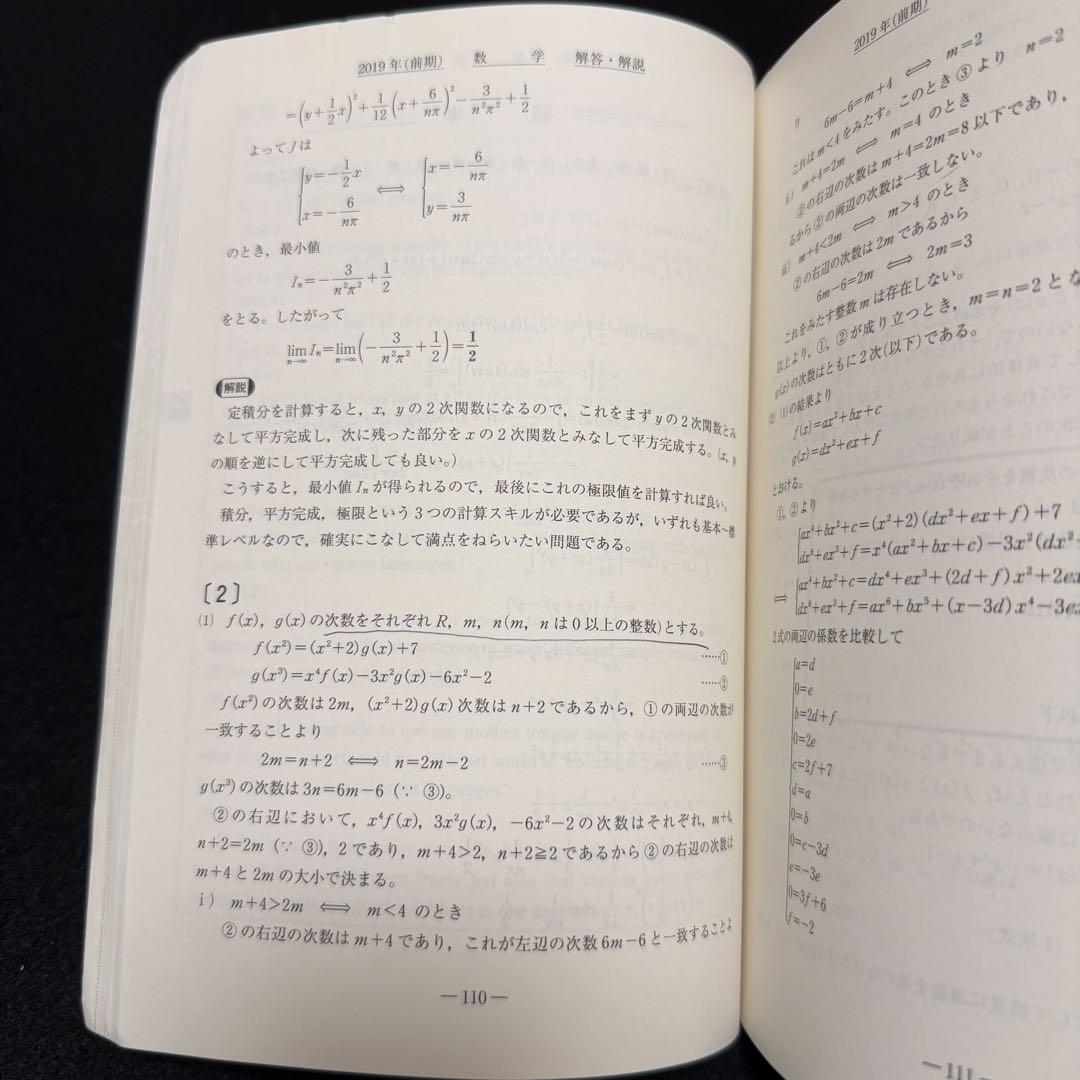 2019年(前期) 数 学 解答・解説
=(y+1/2x)²+1/12(x+6/nπ)²-3/n²π²+1/2
よってJは
{y=-1/2x ⟺ {x=-6/nπ
x=-6/nπ y=3/nπ
のとき，最小値
Iₙ=-3/n²π²+1/2
をとる。したがって
lim Iₙ=lim(-3/n²π²+1/2)=1/2
n→∞ n→∞
解説
定積分を計算すると，x，yの2次関数になるので，これをまずyの2次関数とみ
なして平方完成し，次に残った部分をxの2次関数とみなして平方完成する。(x，y
の順を逆にして平方完成しても良い。)
こうすると，最小値Iₙが得られるので，最後にこれの極限値を計算すれば良い。
積分，平方完成，極限という3つの計算スキルが必要であるが，いずれも基本～標
準レベルなので，確実にこなして満点をねらいたい問題である。
〔2〕
(1) f(x)，g(x)の次数をそれぞれR，m，n(m，nは0以上の整数)とする。
f(x²)=(x²+2)g(x)+7 ……①
g(x³)=x⁴f(x)-3x²g(x)-6x²-2 ……②
f(x²)の次数は2m，(x²+2)g(x)次数はn+2であるから，①の両辺の次数が
一致することより
2m=n+2 ⟺ n=2m-2 ……③
g(x³)の次数は3n=6m-6 (∵ ③)。
②の右辺において，x⁴f(x)，3x²g(x)，-6x²-2の次数はそれぞれ，m+4，
n+2=2m (∵ ③)，2であり，m+4>2，n+2≧2であるから②の右辺の次数は
m+4と2mの大小で決まる。
i) m+4>2m ⟺ m<4のとき
②の右辺の次数はm+4であり，これが左辺の次数6m-6と一致することよ
—110—
2019年(前期)
6m-6=m+4 ⟺ m=2
これはm<4をみたす。このとき③より n=2
ii) m+4=2m ⟺ m=4のとき
②の右辺の次数はm+4=2m=8以下であり，
るから②の両辺の次数は一致しない。
iii) m+4<2m ⟺ m>4のとき
②の右辺の次数は2mであるから
6m-6=2m ⟺ 2m=3
これをみたす整数mは存在しない。
以上より，①，②が成り立つとき，m=n=2とな
g(x)の次数はともに2次(以下)である。
(2) (1)の結果より
f(x)=ax²+bx+c
g(x)=dx²+ex+f
とおける。
①，②より
{ax⁴+bx²+c=(x²+2)(dx²+ex+f)+7
dx⁶+ex³+f=x⁴(ax²+bx+c)-3x²(dx²+
⟺ {ax⁴+bx²+c=dx⁴+ex³+(2d+f)x²+2ex
dx⁶+ex³+f=ax⁶+bx⁵+(x-3d)x⁴-3ex
2式の両辺の係数を比較して
a=d
0=e
b=2d+f
0=2e
c=2f+7
d=a
0=b
0=c-3d
e=-3e
0=3f+6
f=-2
—111—